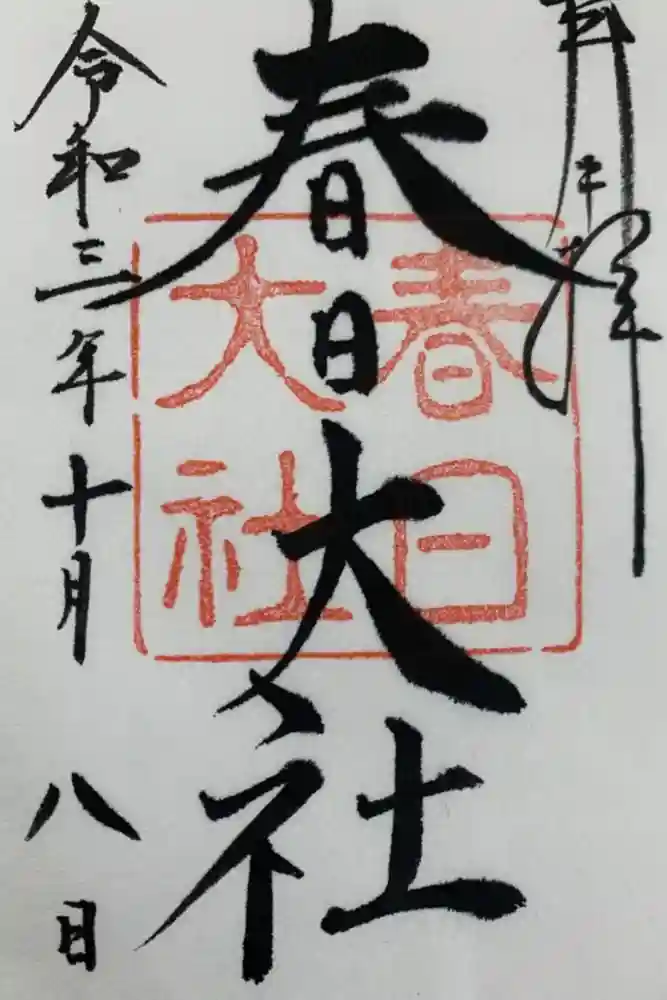 奉拝
春日大社
春日
大社
令和三年十月八日